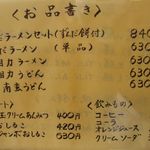 くお品書き>
ラーメンセット(ずんだ餅付) 840
ラーメン (単品) 630
力ラーメン 630
力うどん 630
南蛮うどん 630
クリームあんみつ 400円
おしるこ 420円
ジャンボおしるこ 630円
<飲みもの>
コーヒー
コーラ
オレンジジュース
クリームソーダ